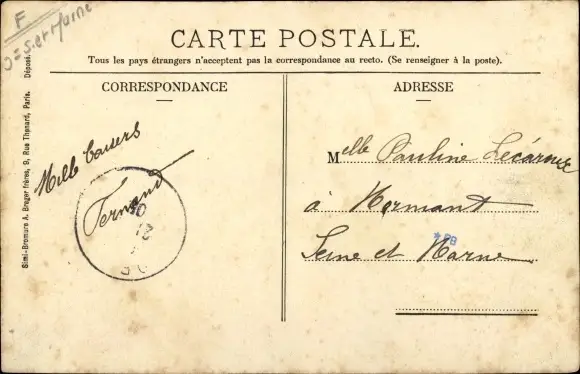 F
S. et Marne
CARTE POSTALE.
Tous les pays étrangers n'acceptent pas la correspondance au recto. (Se renseigner à la poste).
CORRESPONDANCE
ADRESSE
Simi-Bromure A. Breger frères, 9, Rue Thenard, Paris. Déposé.
Mille baisers
Fernand
Melle Pauline
à Mormant
Seine et Marne
* PB